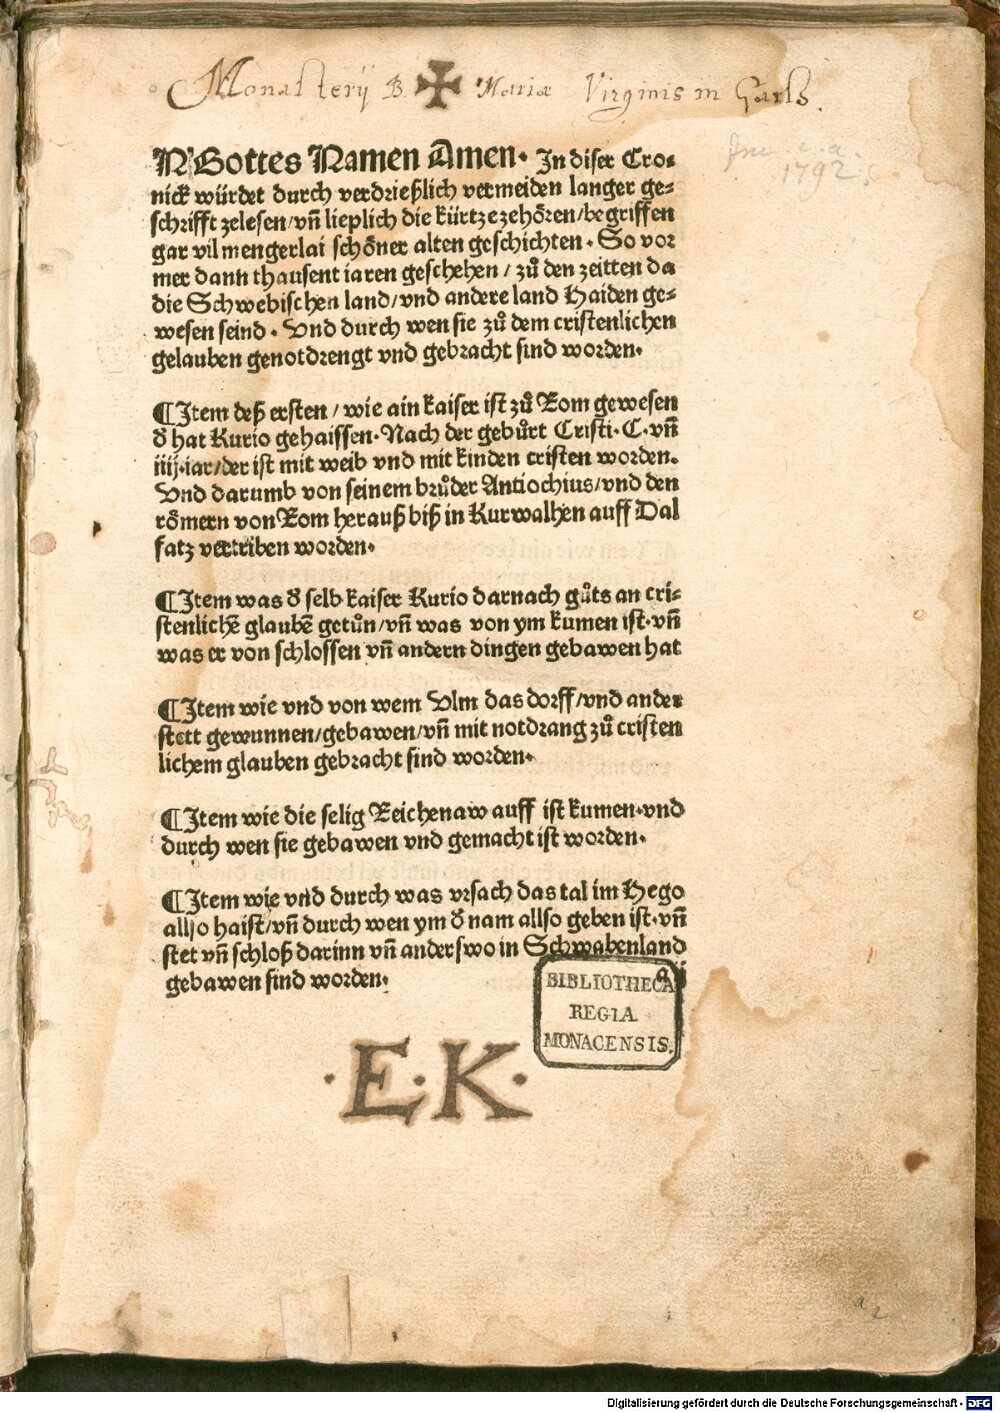 Monasterij B. Mariæ Virginis in Gars.
1792
N Gottes Namen Amen. In diser Cro⸗
nick würdet durch verdrießlich vermeiden langer ge⸗
schrifft zelesen/vñ lieplich die kürtze zehören/begriffen
gar vil mengerlai schöner alten geschichten. So vor
mer dann thausent iaren geschehen / zů den zeitten da
die Schwebischen land/vnd andere land Haiden ge⸗
wesen seind. Vnd durch wen sie zů dem cristenlichen
gelauben genotdrengt vnd gebracht sind worden.
¶Item deß ersten / wie ain kaiser ist zů Rom gewesen
d̕ hat Kurio gehaissen. Nach der gebůrt Cristi. C. vñ
iiij.iar/der ist mit weib vnd mit kinden cristen worden.
Vnd darumb von seinem brůder Antiochius/vnd den
römern von Rom herauß biß in Kurwalhen auff Dal
fatz vertriben worden.
¶Item was d̕ selb kaiser Kurio darnach gůts an cri⸗
stenlichē glaubē getůn/vñ was von ym kumen ist.vñ
was er von schlossen vñ andern dingen gebawen hat
¶Item wie vnd von wem Vlm das dorff/vnd ander
stett gewunnen/gebawen/vñ mit notdrang zů cristen
lichem glauben gebracht sind worden.
¶Item wie die selig Reichenaw auff ist kumen.vnd
durch wen sie gebawen vnd gemacht ist worden.
¶Item wie vnd durch was vrsach das tal im Hego
allso haist/vñ durch wen ym d̕ nam allso geben ist.vñ
stet vñ schloß darinn vñ anderswo in Schwabenland
gebawen sind worden.
BIBLIOTHECA
REGIA
MONACENSIS.
·E·K·
a 2
Digitalisierung gefördert durch die Deutsche Forschungsgemeinschaft - DFG